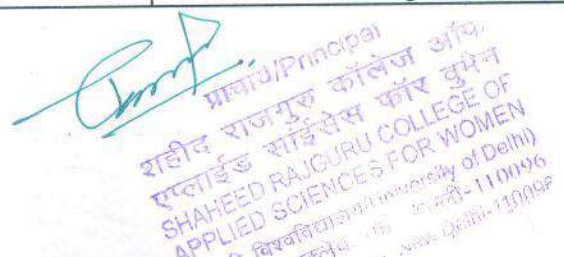 प्राचार्य/Principal
शहीद राजगुरु कॉलेज ऑफ
एप्लाईड साईंसेस फॉर वुमेन
SHAHEED RAJGURU COLLEGE OF
APPLIED SCIENCES FOR WOMEN
विश्वविद्यालय/University of Delhi)
-110096
New Delhi-110096